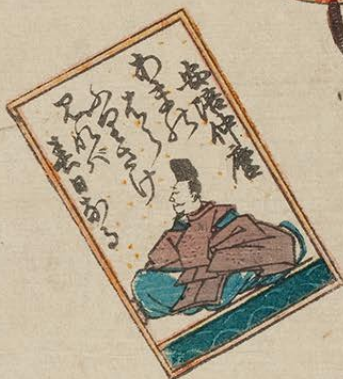 安陪仲麿
あまの
はら
ふりさけ
見れバ
春日なる